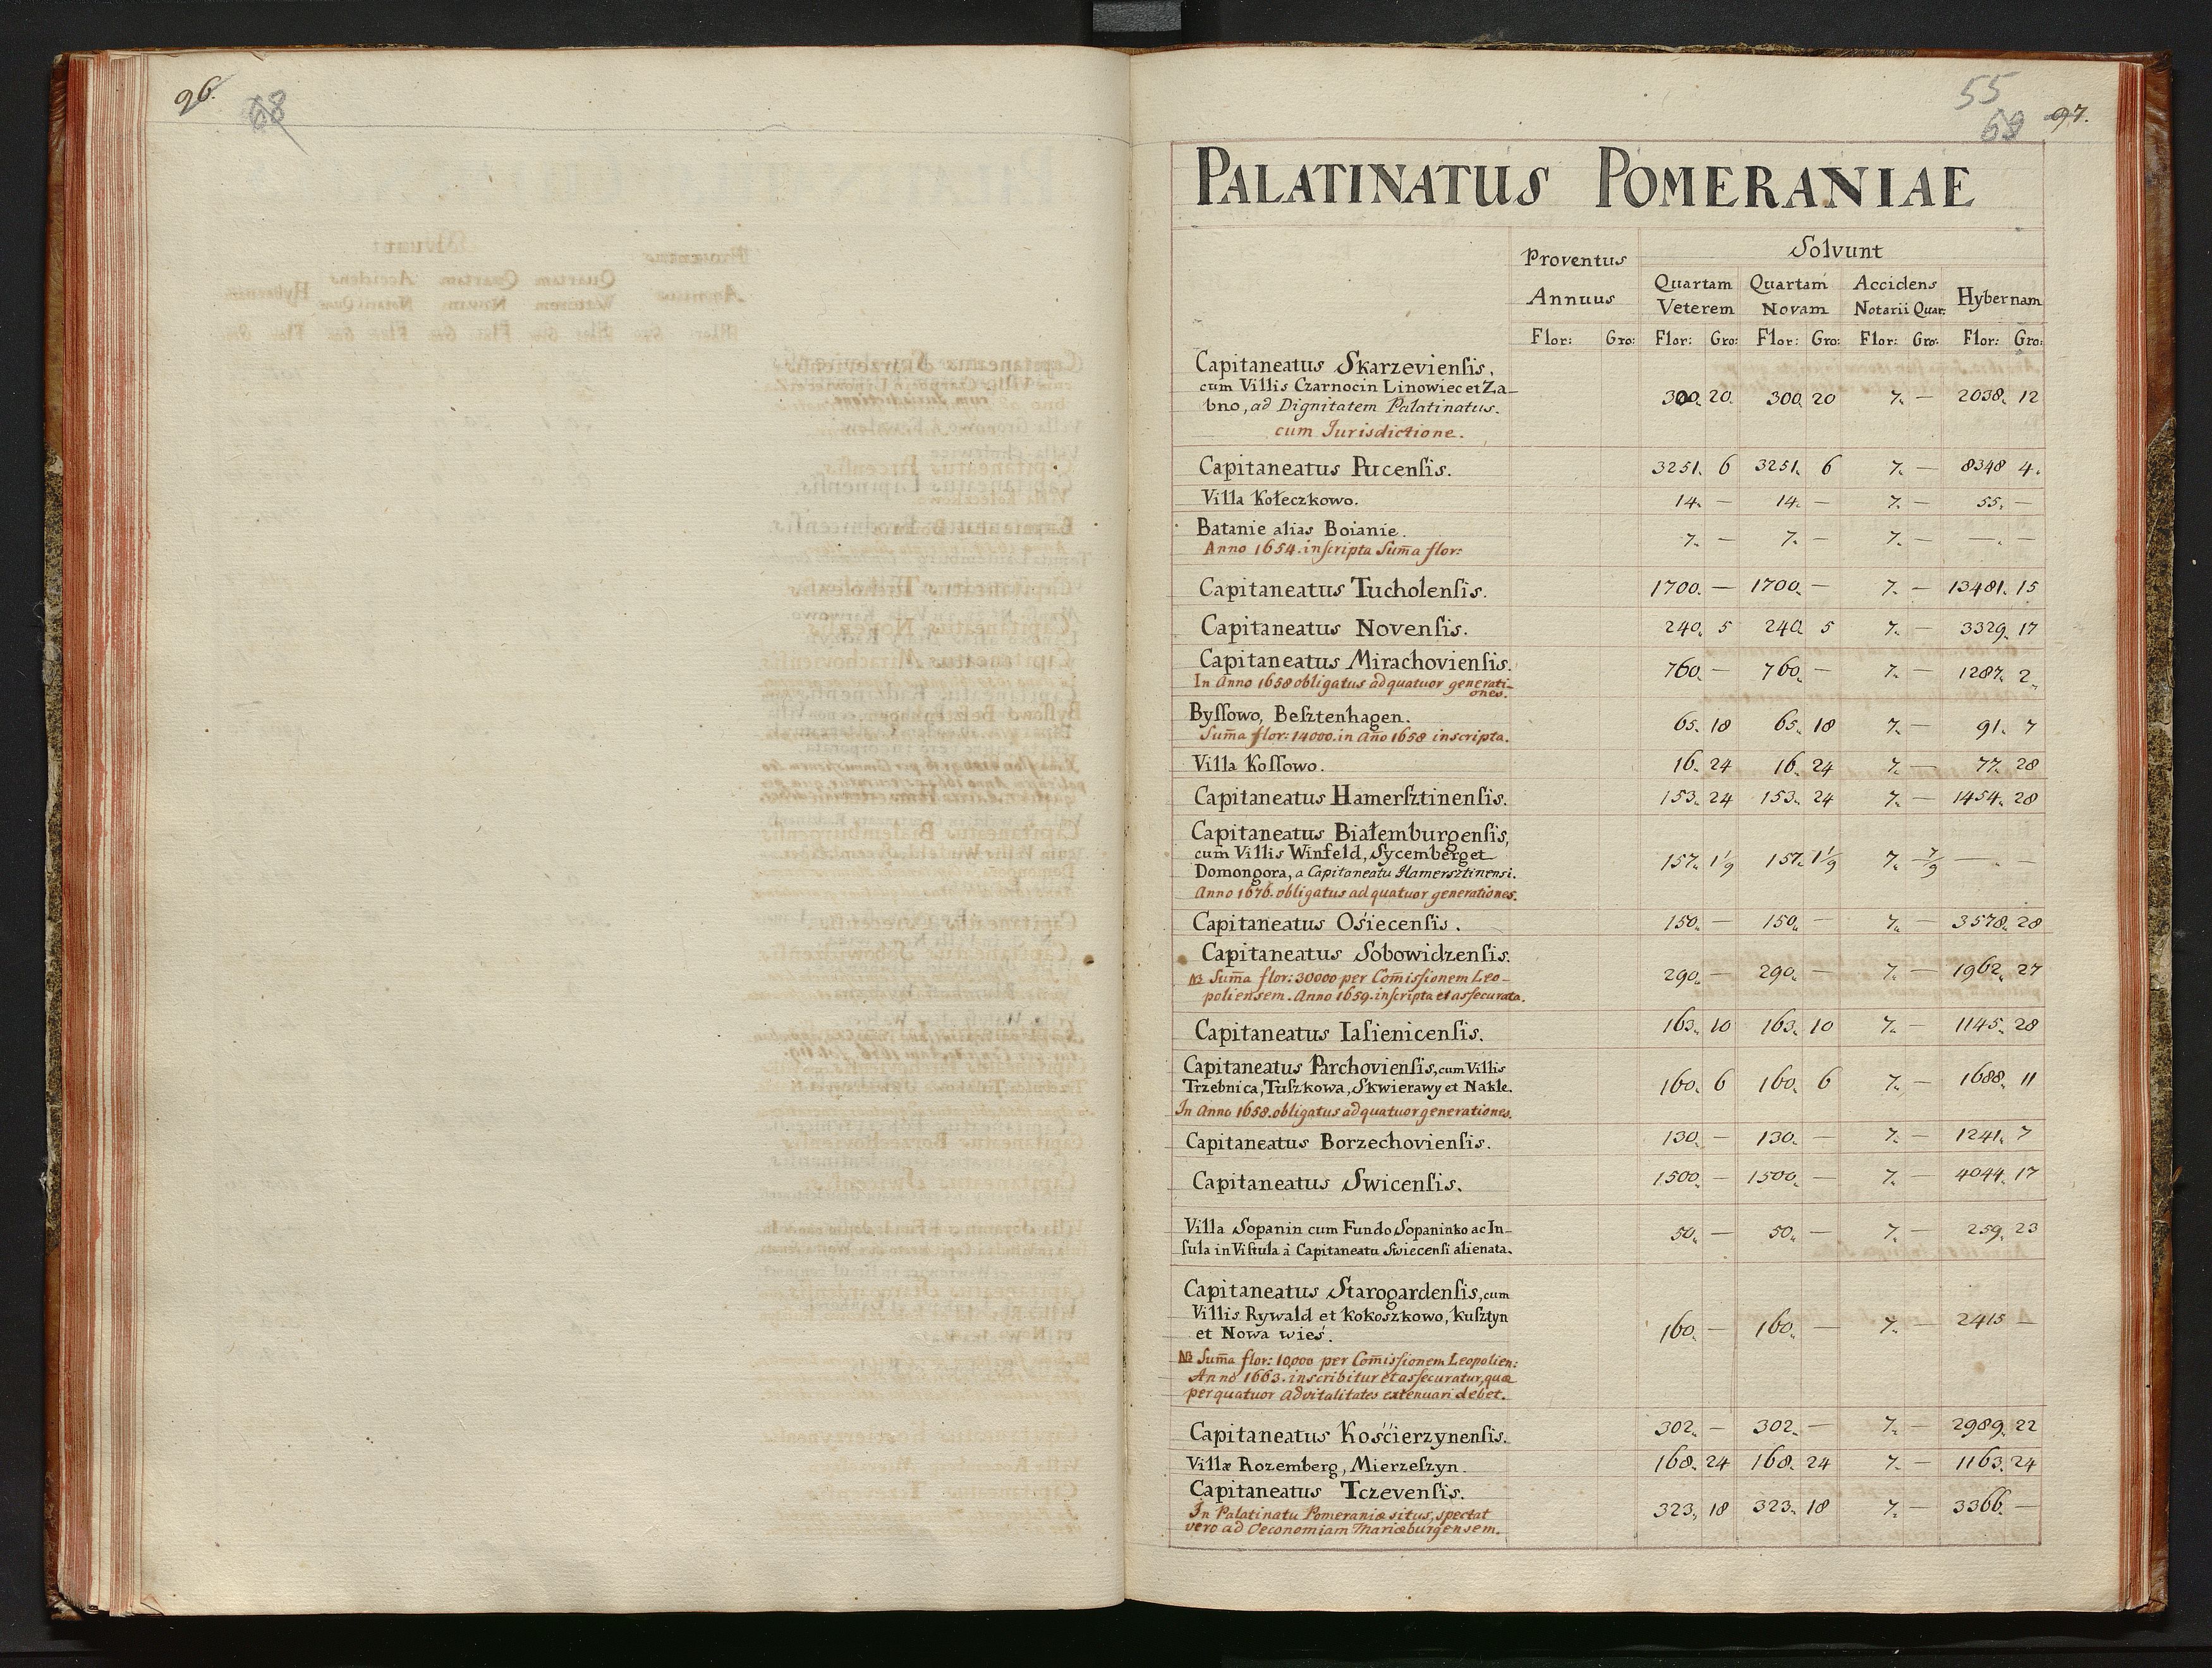 96.
68
55
69
97.
PALATINATUS POMERANIAE
Proventus Annuus
Solvunt
Quartam Veterem
Quartam Novam
Accidens Notarii Quar:
Hybernam
Flor: Gro: Flor: Gro: Flor: Gro: Flor: Gro: Flor: Gro:
Capitaneatus Skarzevienſis,
cum Villis Czarnocin Linowiec et Za-
bno, ad Dignitatem Palatinatus. 300. 20. 300. 20 7. — 2038. 12
cum Iurisdictione.
Capitaneatus Pucenſis. 3251. 6 3251. 6 7. — 8348 4.
Villa Kołeczkowo. 14. — 14. — 7. — 55. —
Batanie alias Boianie. 7. — 7. — 7. — — . —
Anno 1654. inſcripta Sum̄a flor:
Capitaneatus Tucholenſis. 1700. — 1700. — 7. — 13481. 15
Capitaneatus Novenſis. 240. 5 240. 5 7. — 3329. 17
Capitaneatus Mirachovienſis. 760. — 760. — 7. — 1287. 2
In Anno 1658 obligatus ad quatuor generati-
ones.
Byſſowo, Beſztenhagen. 65. 18 65. 18 7. — 91. 7
Sum̄a flor: 14000. in Año 1658 inscripta.
Villa Koſſowo. 16. 24 16. 24 7. — 77. 28
Capitaneatus Hamerſztinenſis. 153. 24 153. 24 7. — 1454. 28
Capitaneatus Białemburgenſis,
cum Villis Winfeld, Sycemberg et
Domongora, a Capitaneatu Hamersztinensi. 157. 1 1/9 157. 1 1/9 7. 7/9 — . —
Anno 1676. obligatus ad quatuor generationes.
Capitaneatus Osiecenſis. 150. — 150. — 7. — 3578. 28
Capitaneatus Sobowidzenſis. 290. — 290. — 7. — 1962. 27
NB Sum̄a flor: 30000 per Com̄iſsionem Leo-
poliensem. Anno 1659. inſcripta et aſsecurata.
Capitaneatus Iaſienicenſis. 163. 10 163. 10 7. — 1145. 28
Capitaneatus Parchovienſis, cum Villis
Trzebnica, Tuſzkowa, Skwierawy et Nakle. 160. 6 160. 6 7. — 1688. 11
In Anno 1658. obligatus ad quatuor generationes.
Capitaneatus Borzechovienſis. 130. — 130. — 7. — 1241. 7
Capitaneatus Swicenſis. 1500. — 1500. — 7. — 4044. 17
Villa Sopanin cum Fundo Sopaninko ac In- 50. — 50. — 7. — 259. 23
ſula in Viſtula à Capitaneatu Swiecenſi alienata.
Capitaneatus Starogardenſis, cum
Villis Rywald et Kokoszkowo, Kuſztyn
et Nowa wieś. 160. — 160. — 7. — 2415 —
NB Sum̄a flor: 10,000 per Com̄iſsionem Leopolien:
Anno 1663. inscribitur et aſsecuratur, quæ
per quatuor advitalitates extenuari debet.
Capitaneatus Kośćierzynenſis. 302. — 302. — 7. — 2989. 22
Villæ Rozemberg, Mierzeſzyn. 168. 24 168. 24 7. — 1163. 24
Capitaneatus Tczevenſis. 323. 18 323. 18 7. — 3366. —
In Palatinatu Pomeraniæ situs, spectat
vero ad Oeconomiam Mariæburgensem.